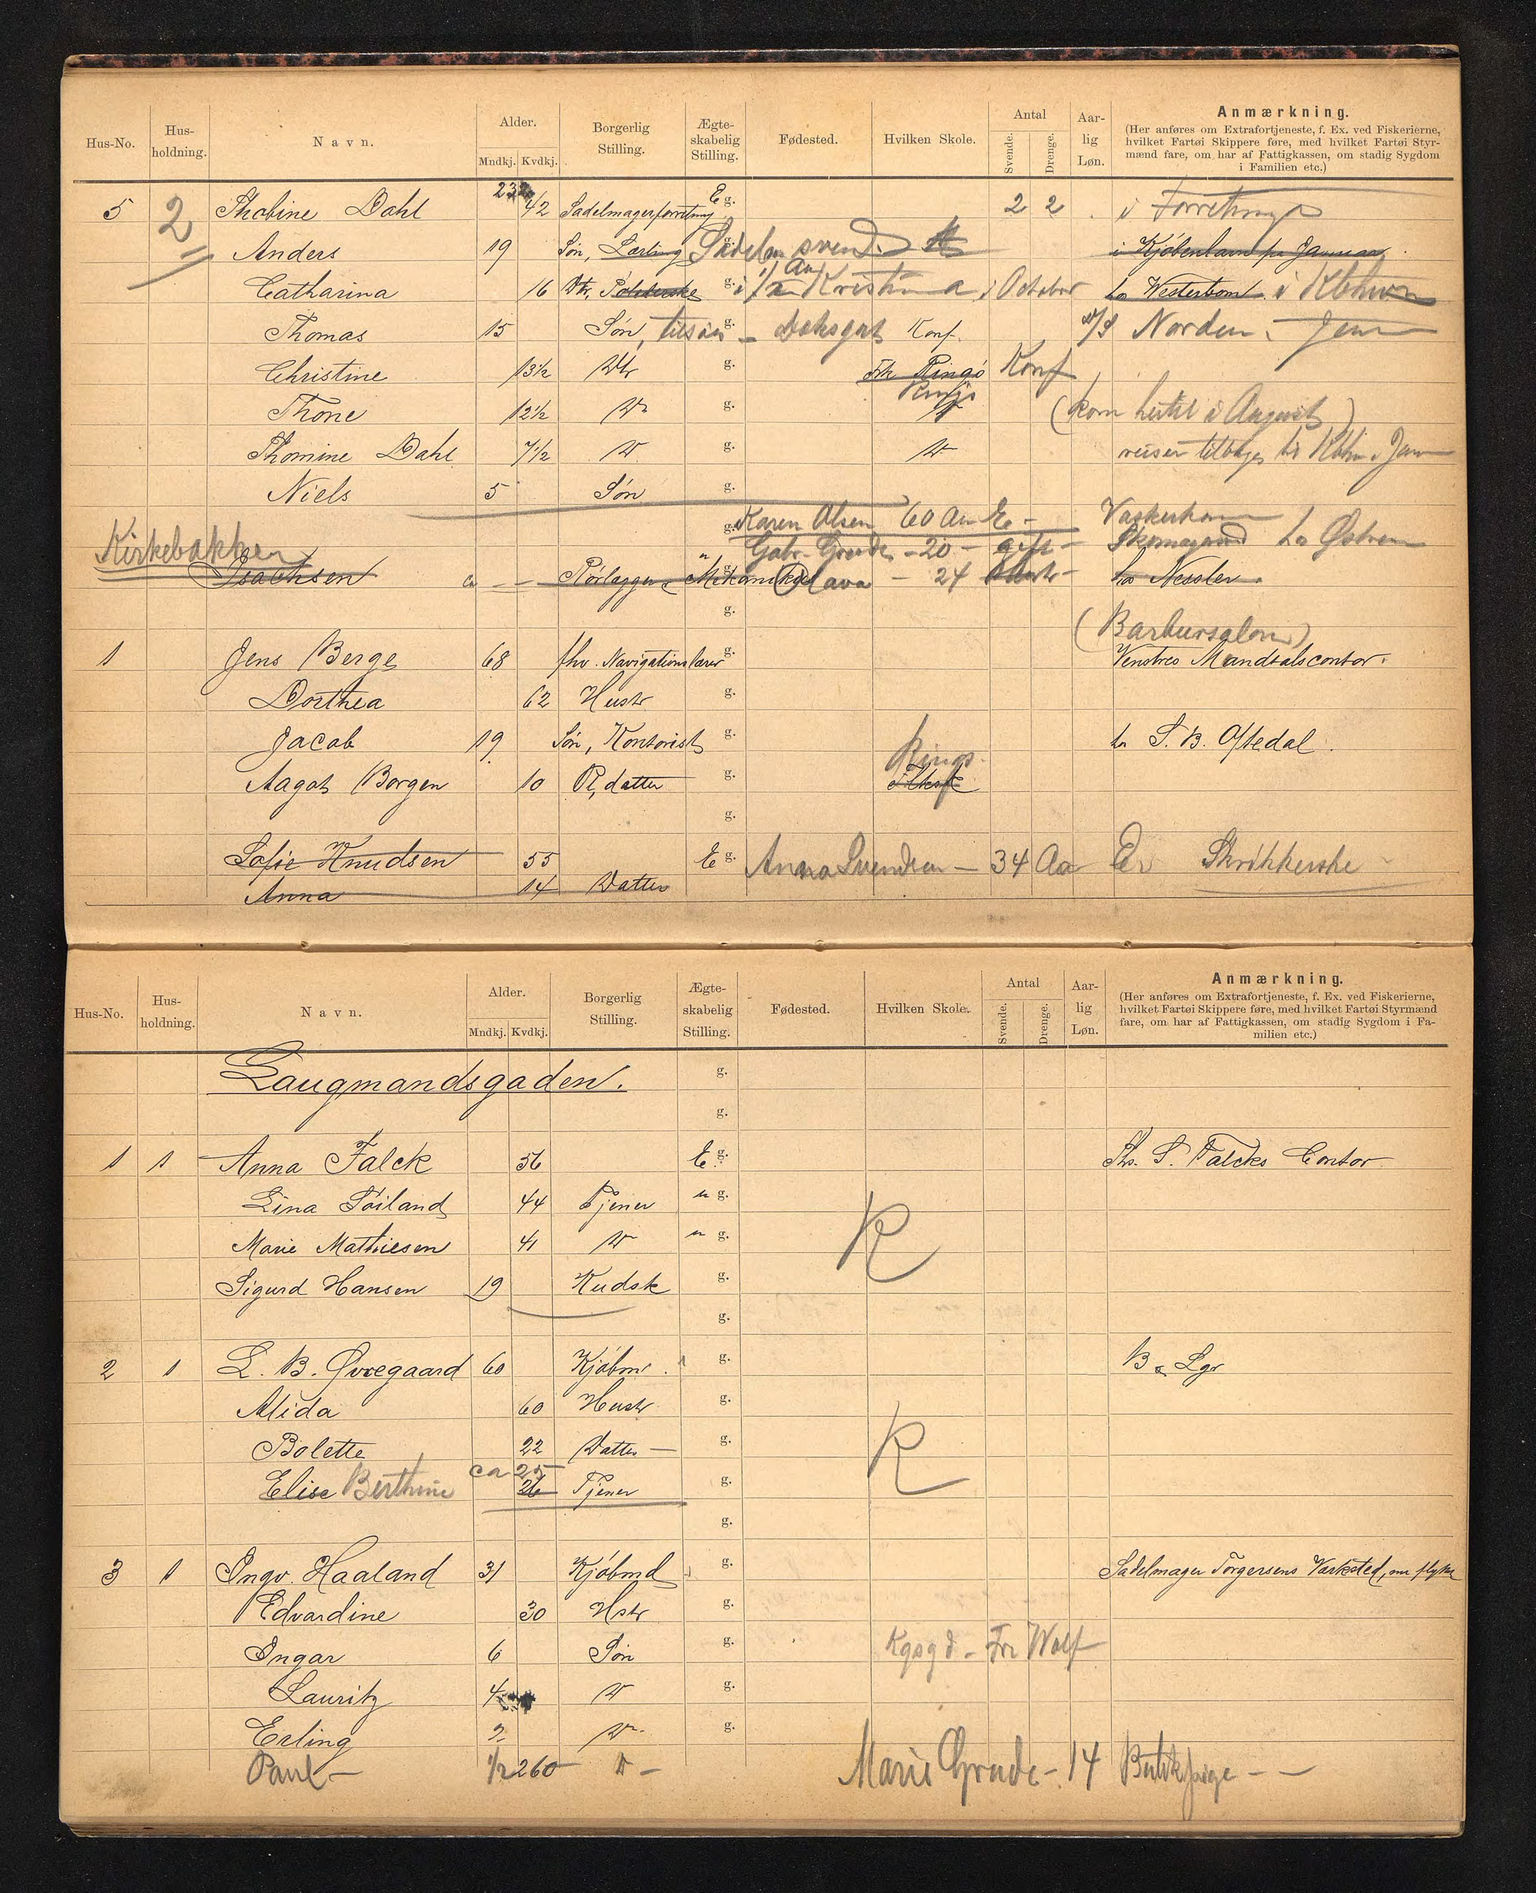 Hus-No. Hus-holdning. Navn. Alder. Mndkj. Kvdkj. Borgerlig Stilling. Ægte-skabelig Stilling. Fødested. Hvilken Skole. Antal Svende. Drenge. Aar-lig Løn. Anmærkning.
(Her anføres om Extrafortjeneste, f. Ex. ved Fiskerierne, hvilket Fartøi Skippere føre, med hvilket Fartøi Styr-mænd fare, om har af Fattigkassen, om stadig Sygdom i Familien etc.)
232
5 2 Thobine Dahl 42 Sadelmagerforretning E g. 2 2 i Forretning
Anders 19 Søn, Lærling Sadelm svend. g. i Kjøbenhavn fra Januar
Catharina 16 Dtr, g. i Kristiania, October hos Westerbom i Kbhvn
Thomas 15 Søn, tilsøs g. Konf. D/S Norden. Jan
Christine 13½ Dtr g. Frk Ringø Konf
Thone 12½ D g. Ringø (kom hertil i August)
Thomine Dahl 7½ D g. D reiser tilbage til Kbhn. Jan
Niels 5 Søn g.
g. Karen Olsen 60 Aar E - Vaskerkone
Kirkebakken Gabr. Grude - 20 - gift - Skomagersvend hos Østrem
Isachsen ca Rørlægger & Mekaniker g. Olava - 24 Hustr - hos Nessler.
g.
(Barbersalon)
1 Jens Berge 68 fhv. Navigationslærer g. Venstres Mandtalscontor.
Dorthea 62 Hustr g.
Jacob 19 Søn, Kontorist g. hos S. B. Oftedal.
Rings.
Aagot Borgen 10 Pl, datter g. Flksk
g.
Sofie Knudsen 55 E g. Anna Svendsen - 34 Aa Er Strikkerske
Anna 14 Datter
Hus-No. Hus-holdning. Navn. Alder. Mndkj. Kvdkj. Borgerlig Stilling. Ægte-skabelig Stilling. Fødested. Hvilken Skole. Antal Svende. Drenge. Aar-lig Løn. Anmærkning.
(Her anføres om Extrafortjeneste, f. Ex. ved Fiskerierne, hvilket Fartøi Skippere føre, med hvilket Fartøi Styrmænd fare, om har af Fattigkassen, om stadig Sygdom i Fa-milien etc.)
Laugmandsgaden. g.
g.
1 1 Anna Falck 56 E g. Ths. S. Falcks Contor
Lina Soiland 44 Tjener u g.
Marie Mathiesen 41 D u g. R
Sigurd Hansen 19 Kudsk g.
g.
2 1 L. B. Qvregaard 60 Kjøbm g. B & Lgr
Alida 60 Hustr g.
Bolette 22 Datter g. R
ca 25
Elise Berthine 26 Tjener g.
g.
3 1 Ingv. Haaland 31 Kjøbmd g. Sadelmager Torgersens Værksted, om flytte
Edvardine 30 Hstr g.
Ingar 6 Søn g. Kgsgd. Fr. Wolf
Lauritz 4 D g.
Erling 2 D g.
Paul - ½ 260 D - Marie Grude - 14 Butikspige - -